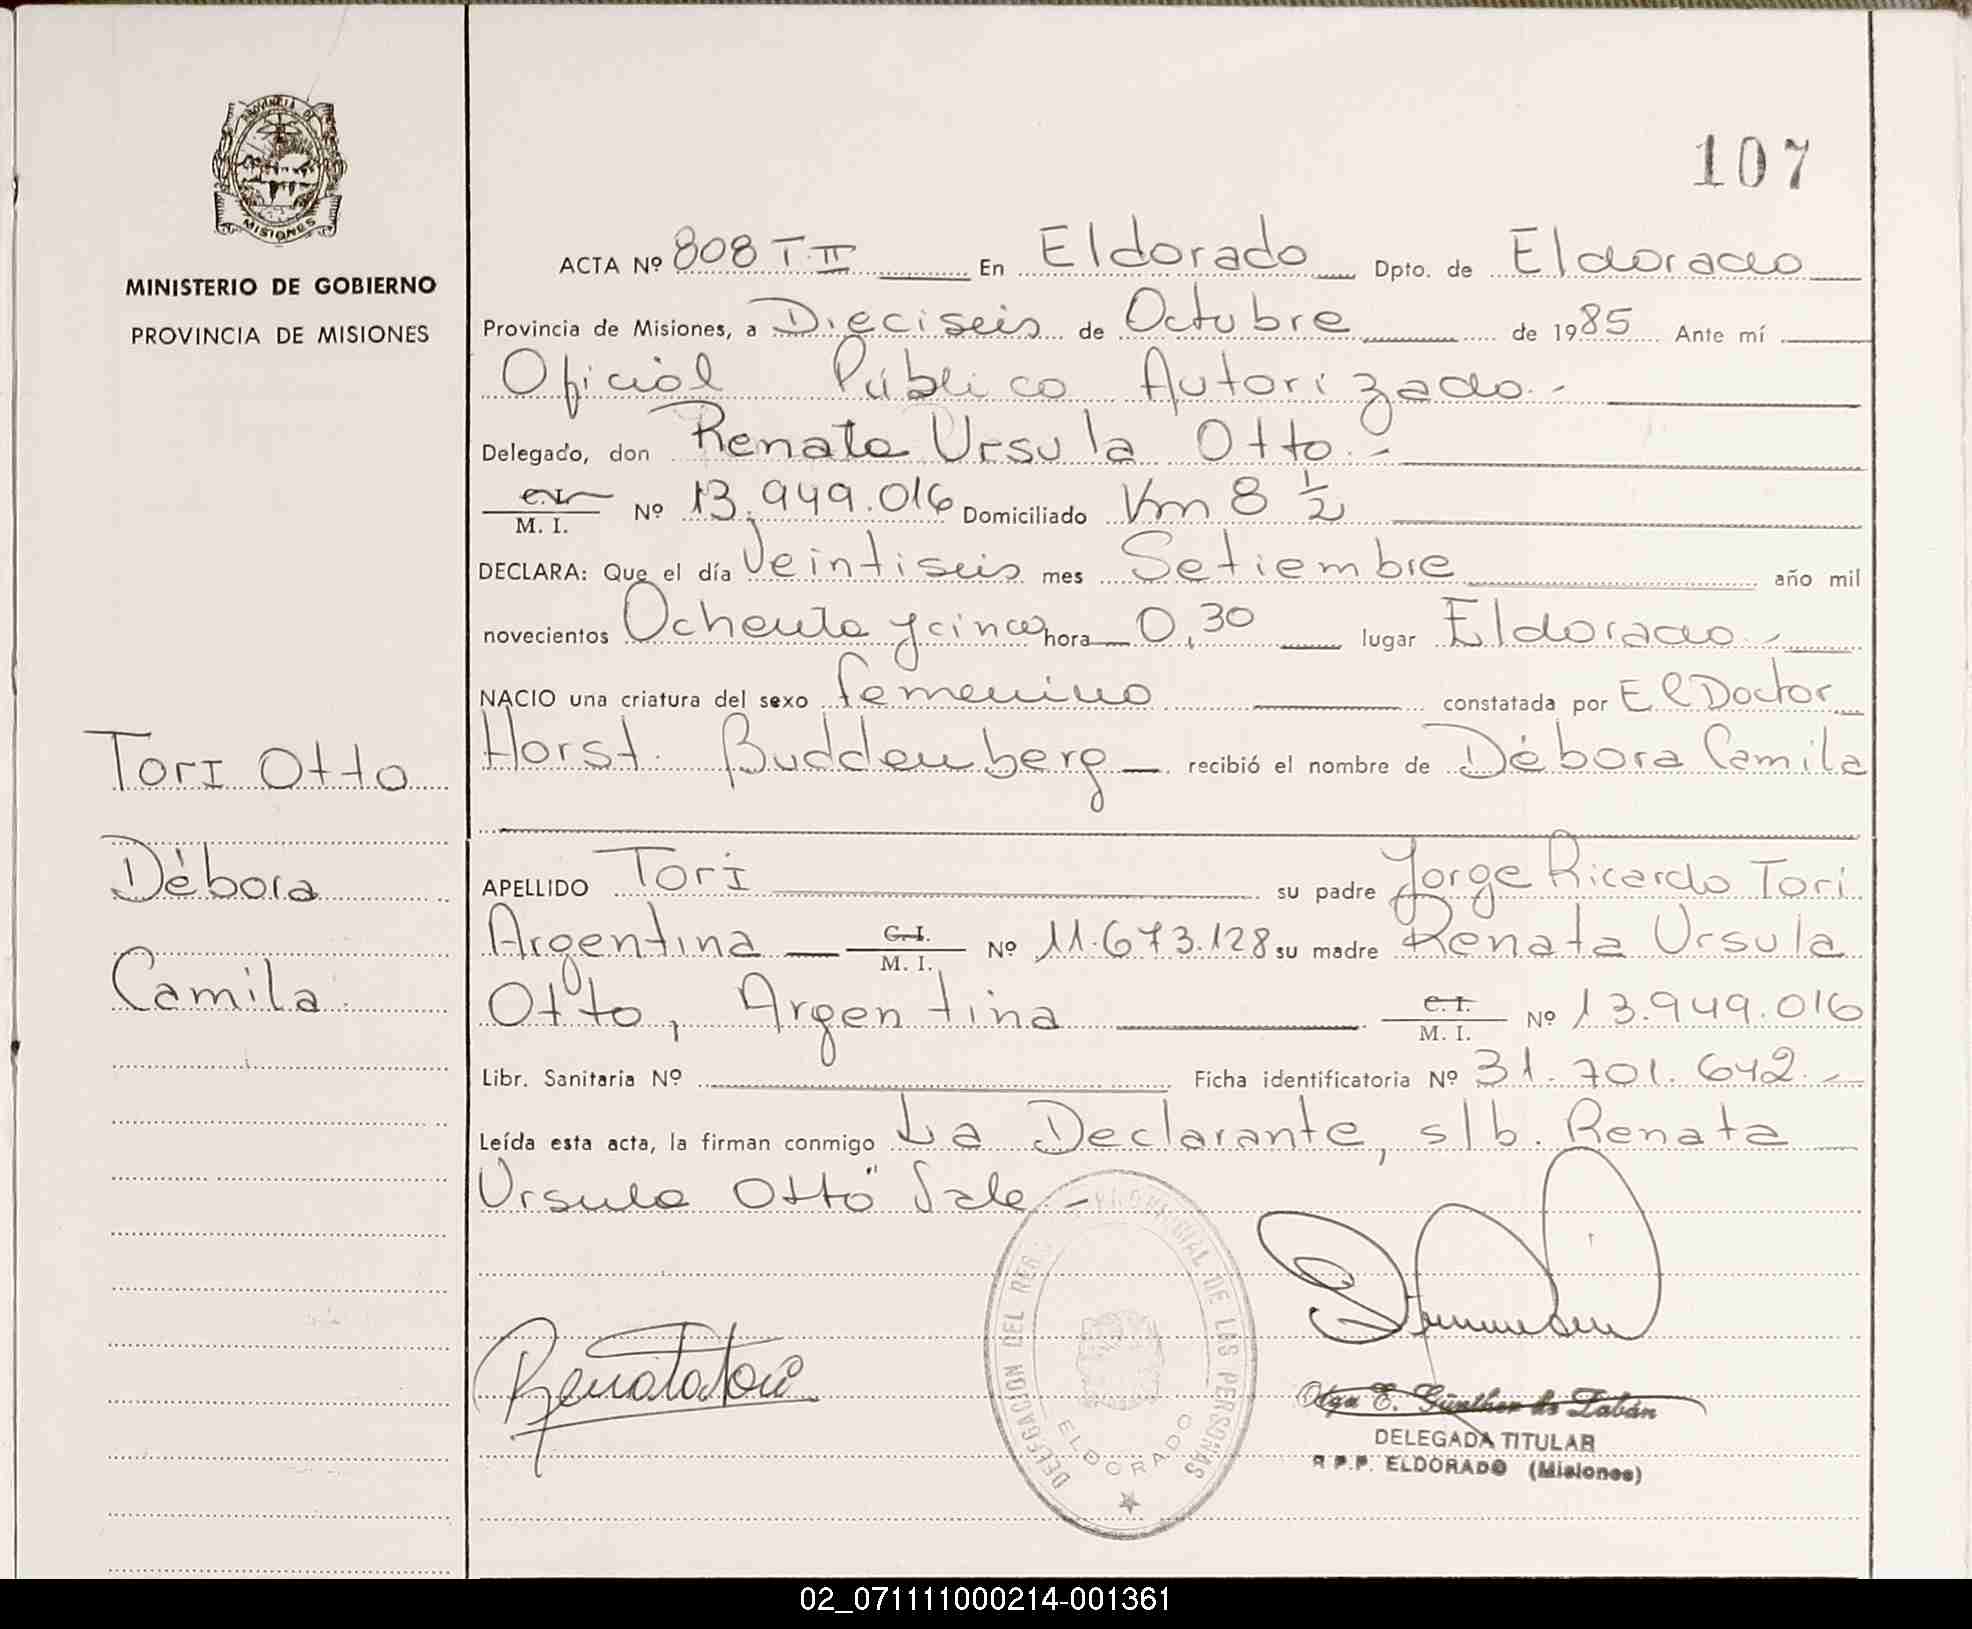 107
PROVINCIA DE
MISIONES
MINISTERIO DE GOBIERNO
PROVINCIA DE MISIONES
Tori Otto
Débora
Camila
ACTA Nº 808 T.II En Eldorado Dpto. de Eldorado
Provincia de Misiones, a Dieciseis de Octubre de 1985 Ante mí
Oficial Público Autorizado.-
Delegado, don Renata Ursula Otto.-
C.I.
M. I. Nº 13.949.016 Domiciliado Km 8 ½
DECLARA: Que el día Veintiseis mes Setiembre año mil
novecientos Ochenta y cinco hora 0,30 lugar Eldorado.-
NACIO una criatura del sexo femenino constatada por El Doctor
Horst. Buddenberg recibió el nombre de Débora Camila
APELLIDO Tori su padre Jorge Ricardo Tori
Argentina C.I. M. I. Nº 11.673.128 su madre Renata Ursula
Otto, Argentina C.I. M. I. Nº 13.949.016
Libr. Sanitaria Nº Ficha identificatoria Nº 31.701.642.-
Leída esta acta, la firman conmigo La Declarante, s/b. Renata
Ursula Otto" Vale.-
Renata Tori
DELEGACION DEL REG. PROVINCIAL DE LAS PERSONAS
ELDORADO
Olga E. Günther de Labán
DELEGADA TITULAR
R.P.P. ELDORADO (Misiones)
02_071111000214-001361